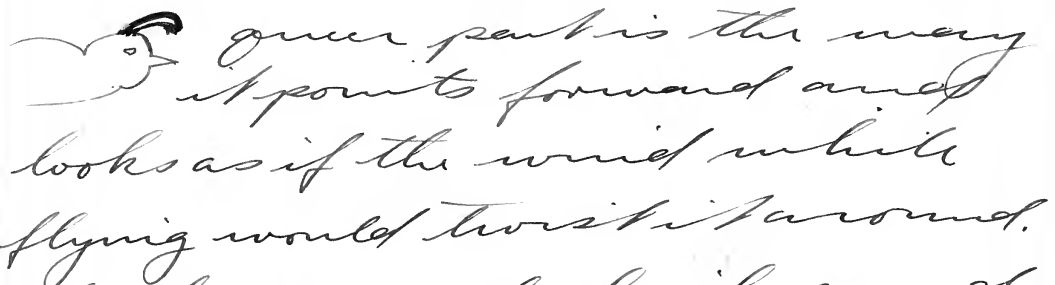 queer part is the way
it points forward and
looks as if the wind while
flying would twist it around.